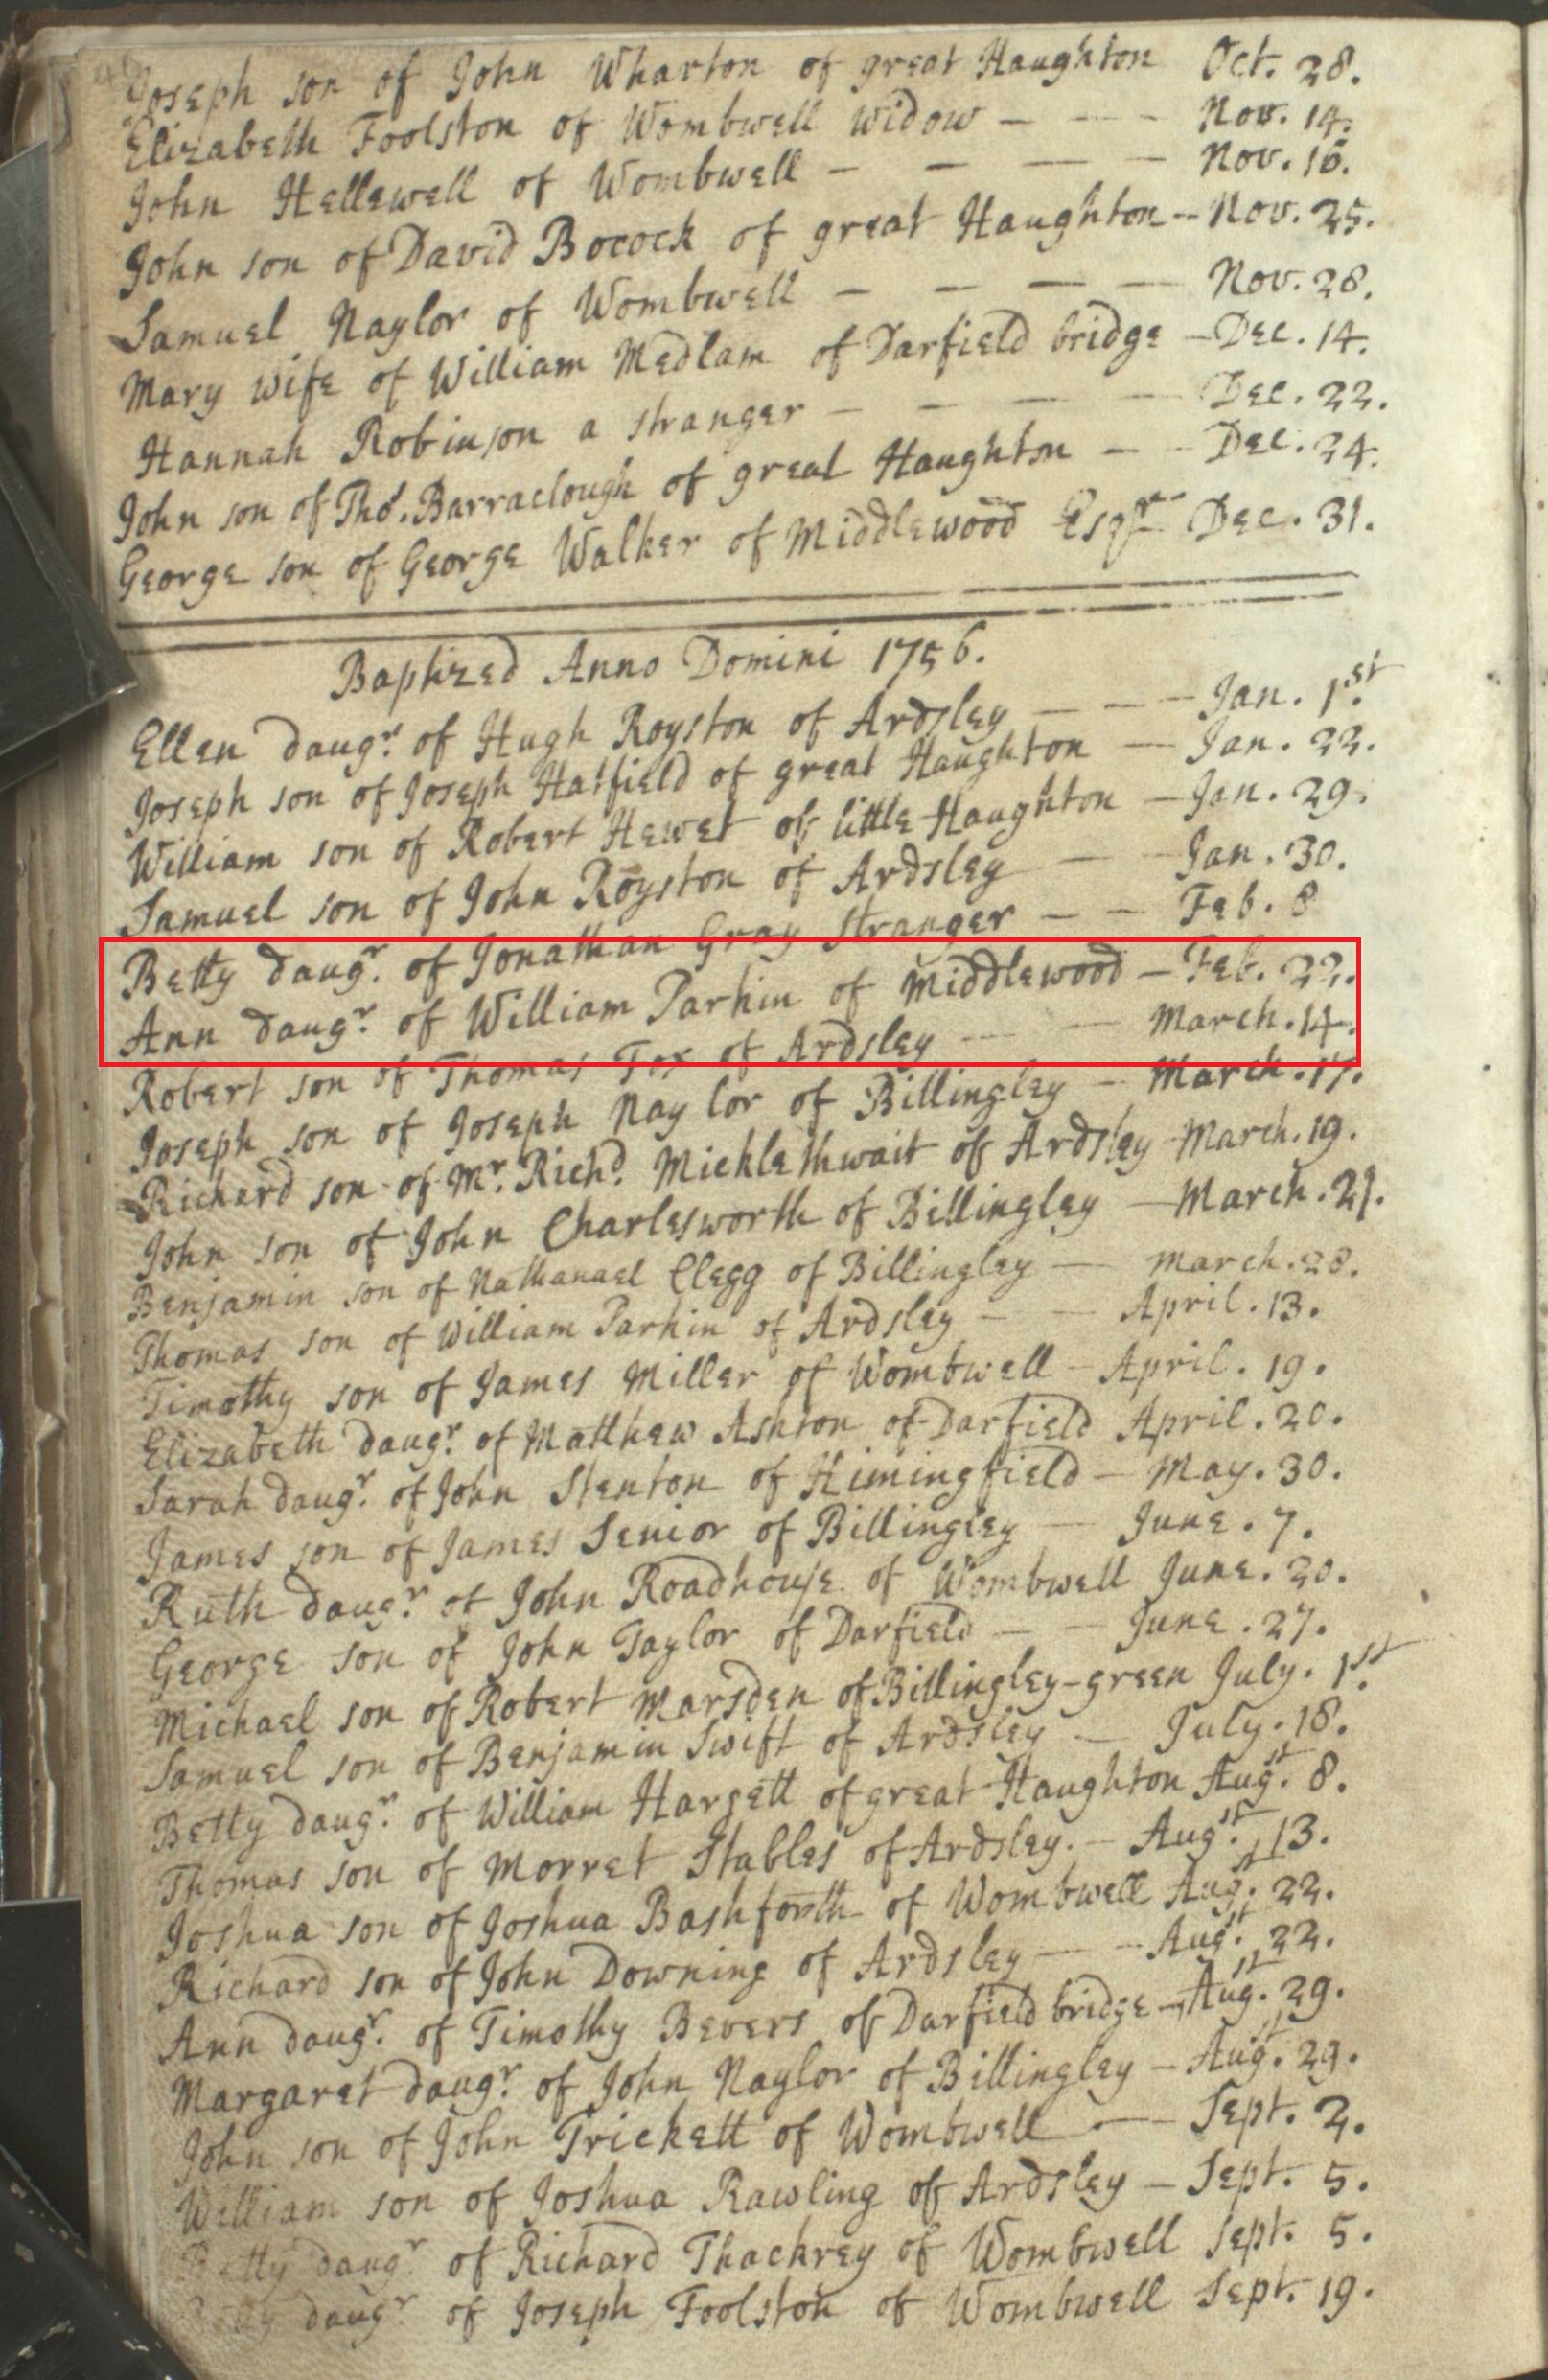 Joseph son of John Wharton of great Haughton Oct. 28.
Elizabeth Foolston of Wombwell widow - - - Nov. 14.
John Hellewell of Wombwell - - - - Nov. 16.
John son of David Bocock of great Haughton -- Nov. 25.
Samuel Naylor of Wombwell - - - - Nov. 28.
Mary wife of William Medlam of Darfield bridge - Dec. 14.
Hannah Robinson a stranger - - - - Dec. 22.
John son of Thos. Barraclough of great Haughton - - Dec. 24.
George son of George Walker of Middlewood Esqr. Dec. 31.
Baptized Anno Domini 1756.
Ellen daugr. of Hugh Royston of Ardsley - - - Jan. 1st.
Joseph son of Joseph Hatfield of great Haughton - Jan. 22.
William son of Robert Hewet of little Haughton - Jan. 29.
Samuel son of John Royston of Ardsley - - Jan. 30.
Betty daugr. of Jonathan Gray stranger - - Feb. 8
Ann daugr. of William Parkin of Middlewood - Feb. 22.
Robert son of Thomas Fox of Ardsley - - March. 14.
Joseph son of Joseph Naylor of Billingley - March. 17.
Richard son of Mr. Richd. Micklethwait of Ardsley March. 19.
John son of John Charlesworth of Billingley - March. 21.
Benjamin son of Nathanael Clegg of Billingley - March. 28.
Thomas son of William Parkin of Ardsley - - April. 13.
Timothy son of James Miller of Wombwell - April. 19.
Elizabeth daugr. of Matthew Ashton of Darfield April. 20.
Sarah daugr. of John Stenton of Himingfield - May. 30.
James son of James Senior of Billingley - June. 7.
Ruth daugr. of John Roadhouse of Wombwell June. 20.
George son of John Taylor of Darfield - - June. 27.
Michael son of Robert Marsden of Billingley-green July. 1st.
Samuel son of Benjamin Swift of Ardsley - July. 18.
Betty daugr. of William Hargett of great Haughton Augst. 8.
Thomas son of Morret Stables of Ardsley. - Augst. 13.
Joshua son of Joshua Bashforth of Wombwell Augst. 22.
Richard son of John Downing of Ardsley - - Augst. 22.
Ann daugr. of Timothy Bevers of Darfield bridge - Augst. 29.
Margaret daugr. of John Naylor of Billingley - Augst. 29.
John son of John Trickett of Wombwell - Sept. 2.
William son of Joshua Rawling of Ardsley - Sept. 5.
Betty daugr. of Richard Thackrey of Wombwell Sept. 5.
daugr. of Joseph Foolston of Wombwell Sept. 19.